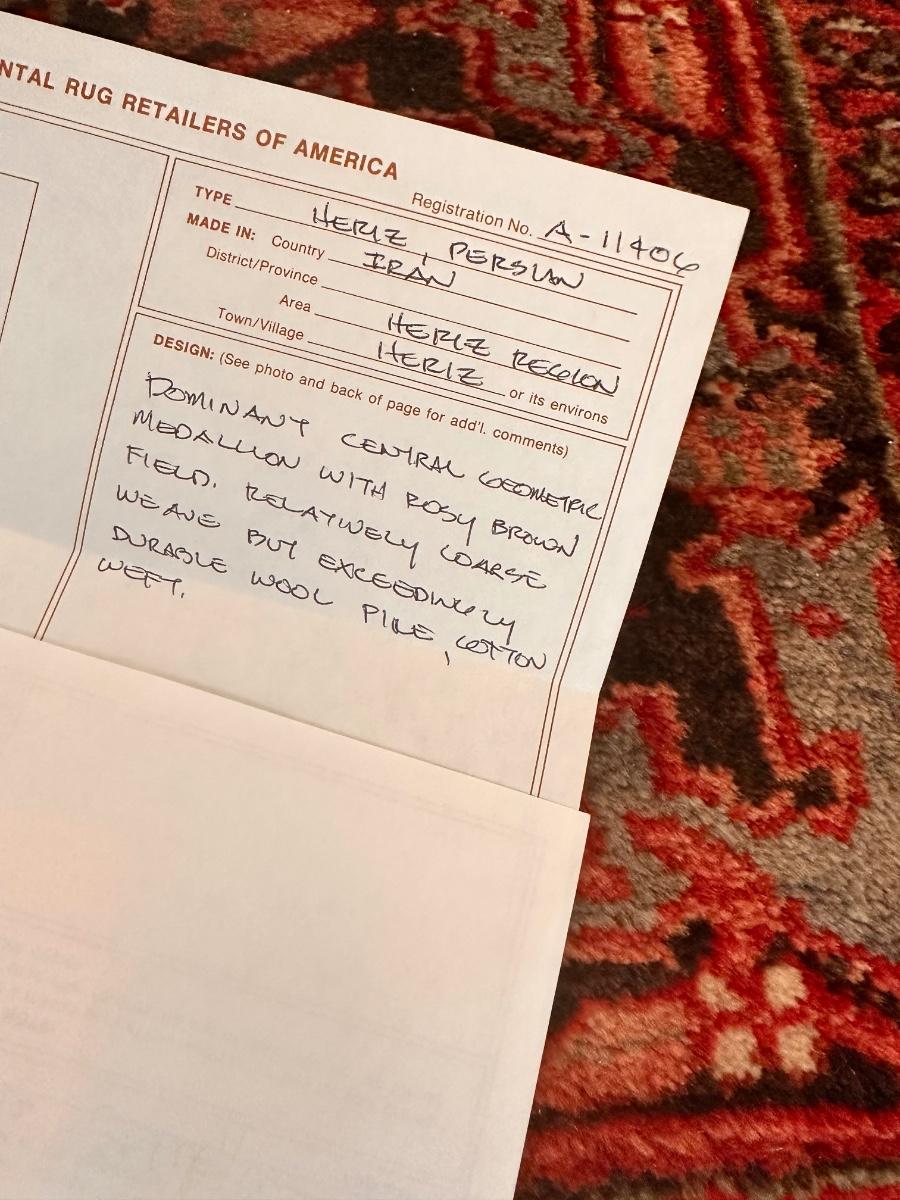 NTAL RUG RETAILERS OF AMERICA
Registration No. A-11406
TYPE HERIZ, PERSIAN
MADE IN: Country IRAN
District/Province
Area HERIZ REGION
Town/Village HERIZ or its environs
DESIGN: (See photo and back of page for add'l. comments)
DOMINANT CENTRAL GEOMETRIC
MEDALLION WITH ROSY BROWN
FIELD. RELATIVELY COARSE
WEAVE BUT EXCEEDINGLY
DURABLE WOOL PILE, COTTON
WEFT.